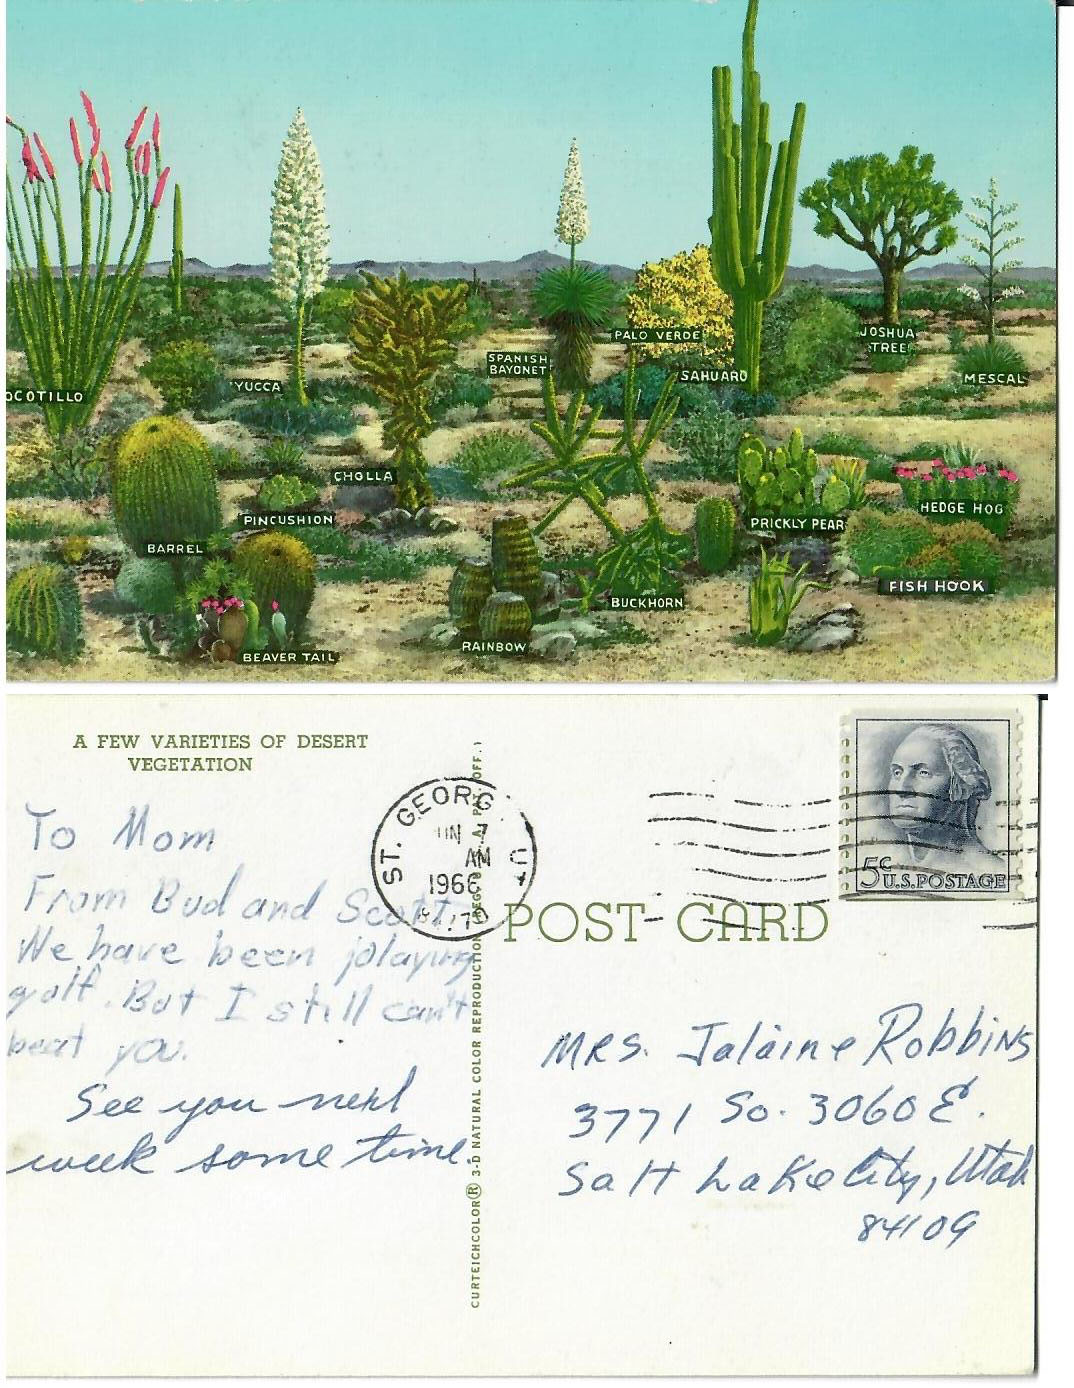 OCOTILLO
YUCCA
CHOLLA
SPANISH
BAYONET
PALO VERDE
SAHUARO
JOSHUA
TREE
MESCAL
PINCUSHION
BARREL
BEAVER TAIL
RAINBOW
BUCKHORN
PRICKLY PEAR
HEDGE HOG
FISH HOOK
A FEW VARIETIES OF DESERT
VEGETATION
To Mom
From Bud and Scott.
We have been playing
golf. But I still can't
beat you.
See you next
week some time.
ST. GEORG UT
7
AM
1966
5c
U.S. POSTAGE
POST CARD
CURTEICHCOLOR® 3-D NATURAL COLOR REPRODUCTION OFF.)
MRS. Jalaine Robbins
3771 So. 3060 E.
Salt Lake City, Utah
84109